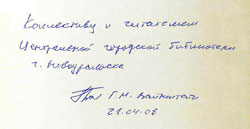 Коллективу и читателям
Центральной городской библиотеки
г. Новоуральска
Г. М.
21.04.08